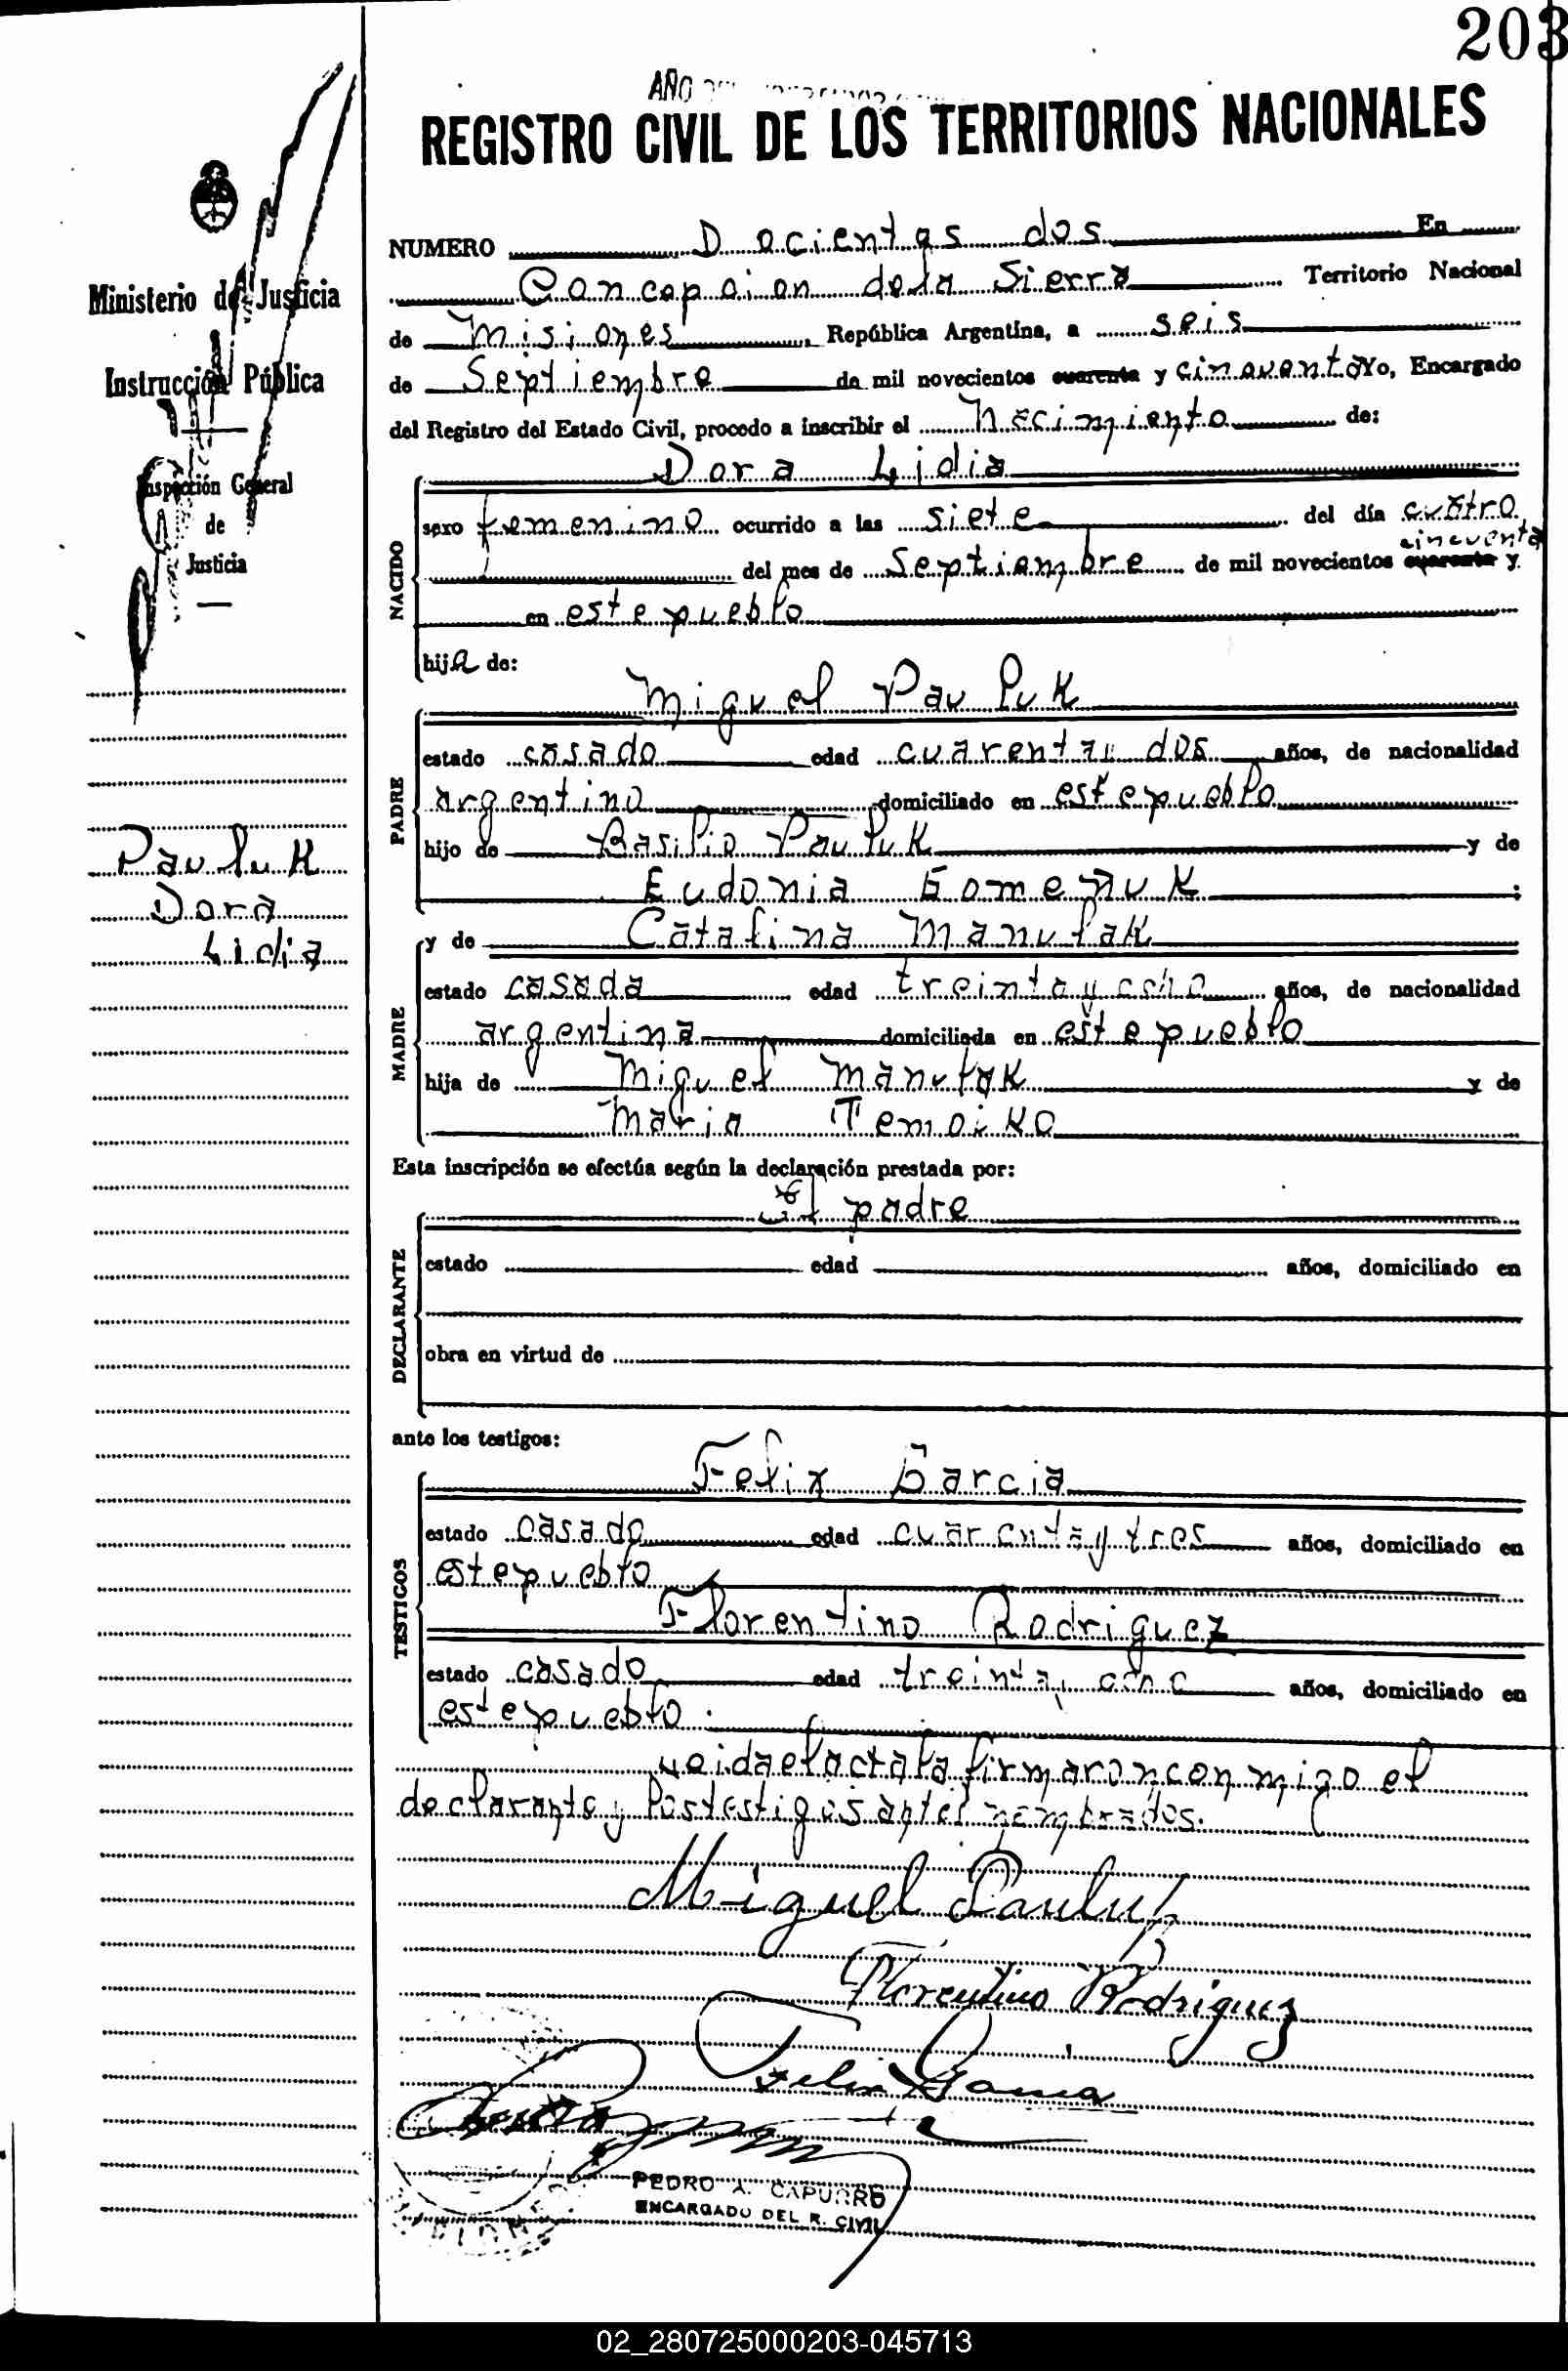 203
AÑO
REGISTRO CIVIL DE LOS TERRITORIOS NACIONALES
Ministerio de Justicia
Instrucción Pública
Inspección General
de
Justicia
Pauluk
Dora
Lidia
NUMERO Docientos dos En
Concepcion de la Sierra Territorio Nacional
de Misiones, República Argentina, a seis
de Septiembre de mil novecientos cuarenta y cincuenta Yo, Encargado
del Registro del Estado Civil, procedo a inscribir el Nacimiento de:
NACIDO
Dora Lidia
sexo femenino ocurrido a las siete del día cuatro
cincuenta
del mes de Septiembre de mil novecientos cuarenta y
en este pueblo
hija de:
PADRE
Miguel Pauluk
estado casado edad cuarentay dos años, de nacionalidad
argentino domiciliado en este pueblo
hijo de Basilio Pauluk y de
Eudonia ;
MADRE
y de Catalina Manulak
estado casada edad treinta y ocho años, de nacionalidad
argentina domiciliada en este pueblo
hija de Miguel Manulak y de
Maria
Esta inscripción se efectúa según la declaración prestada por:
DECLARANTE
El padre
estado edad años, domiciliado en
obra en virtud de
ante los testigos:
TESTIGOS
Felix Garcia
estado casado edad cuarenta y tres años, domiciliado en
este pueblo
Florentino Rodriguez
estado casado edad treinta y ocho años, domiciliado en
este pueblo.
Leida el acta la firmaron conmigo el
declarante y los testigos antes nombrados.
Miguel Pauluk
Florentino Rodriguez
Felix Garcia
PEDRO A. CAPURRO
ENCARGADO DEL R. CIVIL
02_280725000203-045713